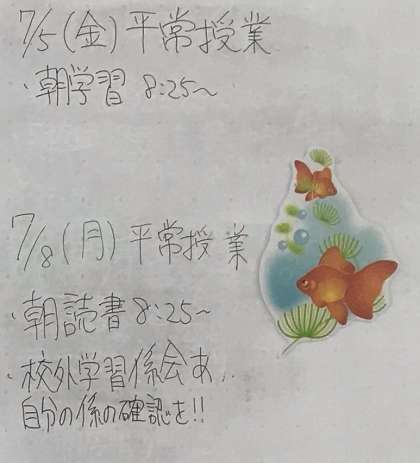 7/5(金)平常授業
・朝学習 8:25〜
7/8(月)平常授業
・朝読書 8:25〜
・校外学習係会あ..
自分の係の確認を!!